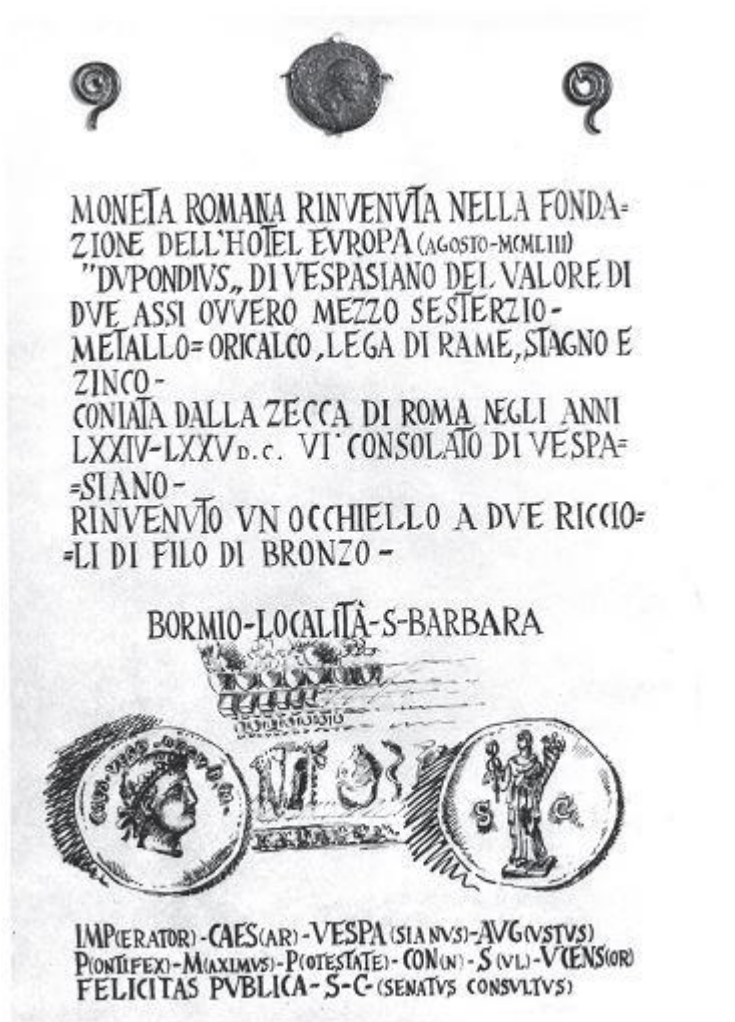 MONETA ROMANA RINVENVTA NELLA FONDA=
ZIONE DELL'HOTEL EVROPA (AGOSTO-MCMLIII)
"DVPONDIVS„ DI VESPASIANO DEL VALORE DI
DVE ASSI OVVERO MEZZO SESTERZIO-
METALLO=ORICALCO, LEGA DI RAME, STAGNO E
ZINCO-
CONIATA DALLA ZECCA DI ROMA NEGLI ANNI
LXXIV-LXXV D.C. VI° CONSOLATO DI VESPA=
=SIANO-
RINVENVTO VN OCCHIELLO A DVE RICCIO=
=LI DI FILO DI BRONZO-
BORMIO-LOCALITÀ-S-BARBARA
S C
IMP(ERATOR)-CAES(AR)-VESPA(SIANVS)-AVG(VSTVS)
P(ONTIFEX)-M(AXIMVS)-P(OTESTATE)-CON(N)-S(VL)-VCENS(OR)
FELICITAS PVBLICA-S-C-(SENATVS CONSVLTVS)